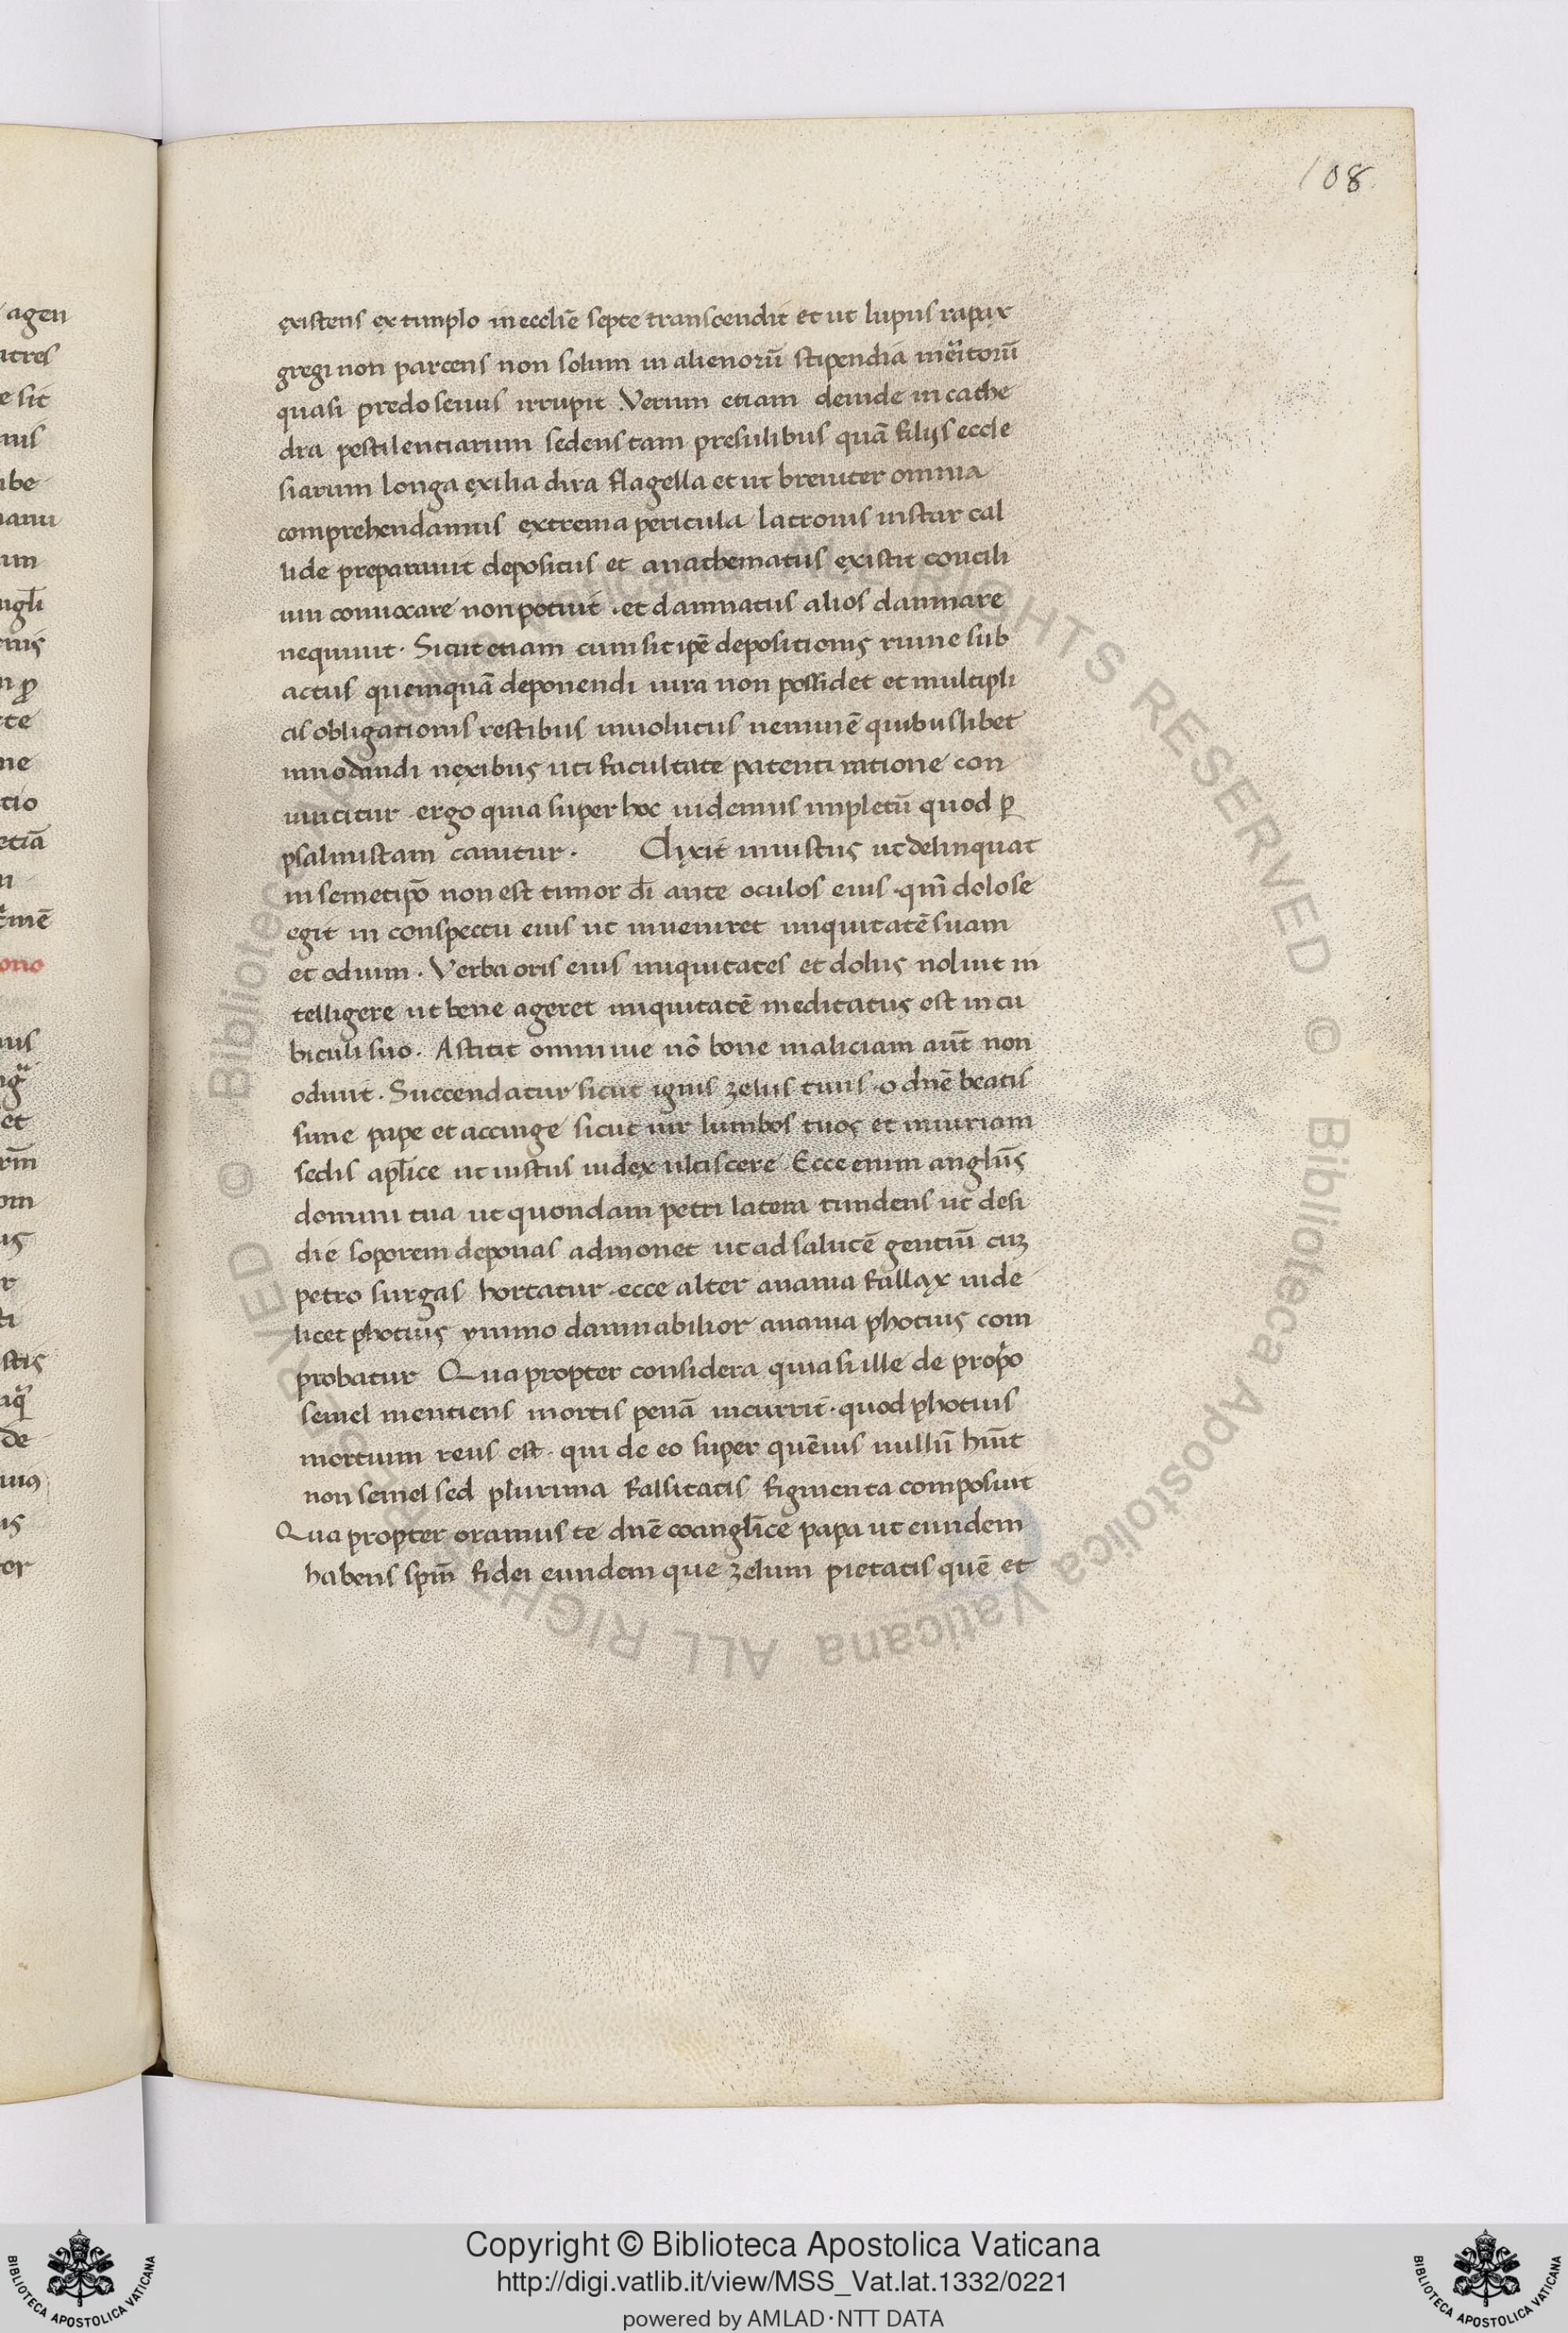 108
existens extimplo in ecclīe septe transcendit et ut lupus rapax
gregi non parcens non solum in alienorū stipendia meritorū
quasi predo seuus irrupit Verum etiam deinde in cathe
dra pestilentiarum sedens tam presulibus quā filijs eccle
siarum longa exilia dira flagella et ut breuiter omnia
comprehendamus extrema pericula latronis instar cal
lide preparauit depositus et anathematus existit concili
um conuocare non potuit . et damnatus alios damnare
nequiuit . Sicut etiam cum sit ipē depositionis ruine sub
actus quemquā deponendi iura non possidet et multipli
cis obligationis restibus inuolutus neminē quibuslibet
innodandi nexibus uti facultate patenti ratione con
uincitur . ergo quia super hoc uidemus impletū quod p̲
psalmistam canitur . Dixit iniustus ut delinquat
in semetip̄o non est timor d̄i ante oculos eius . qm̄ dolose
egit in conspectu eius ut inueniret iniquitatē suam
et odium . Verba oris eius iniquitates et dolus noluit in
telligere ut bene ageret iniquitatē meditatus est in cu
biculi suo . Astitit omni uie nō bone maliciam aūt non
odiuit . Succendatur sicut ignis zelus tuus . o dn̄e beatis
sime pape et accinge sicut uir lumbos tuos et iniuriam
sedis apl̄ice ut iustus iudex ulciscere . Ecce enim anglūs
domini tua ut quondam petri latera tundens ut desi
die soporem deponas admonet ut ad salutē gentiū cuȝ
petro surgas hortatur . ecce alter anania fallax uide
licet photius ymmo damnabilior anania photius com
probatur Qua propter considera quia si ille de prop̄o
semel mentiens mortis penā incurrit . quod photius
mortuum reus est . qui de eo super quēuis nullū hīnt
non semel sed plurima falsitatis figmenta composuit
Qua propter oramus te dn̄e coangl̄ice papa ut eundem
habens spm̄ fidei eundem que zelum pietatis quē et
agen
e sit
ibe
ne
tio
etiā
ono
et
de
Copyright © Biblioteca Apostolica Vaticana
http://digi.vatlib.it/view/MSS_Vat.lat.1332/0221
powered by AMLAD·NTT DATA
BIBLIOTECA APOSTOLICA VATICANA
BIBLIOTECA APOSTOLICA VATICANA
© Biblioteca Apostolica Vaticana ALL RIGHTS RESERVED © Biblioteca Apostolica Vaticana ALL RIGHTS RESERVED